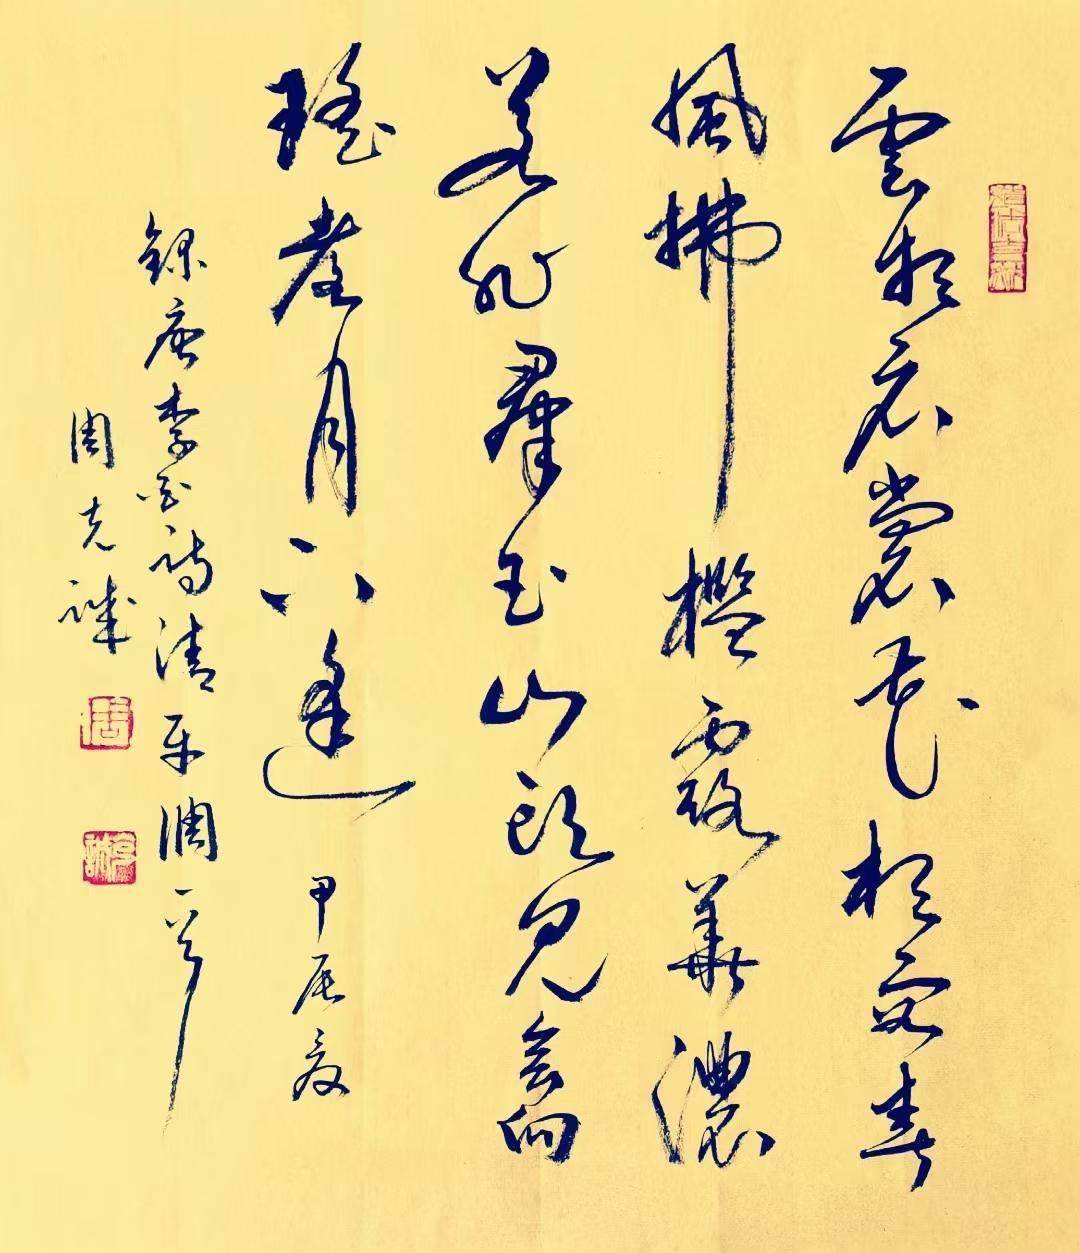 雲想衣裳花想容春
風拂檻露華濃
若非羣玉山頭見會向
瑤臺月下逢 甲辰夏
錄唐李白詩清平調一首
周克誠